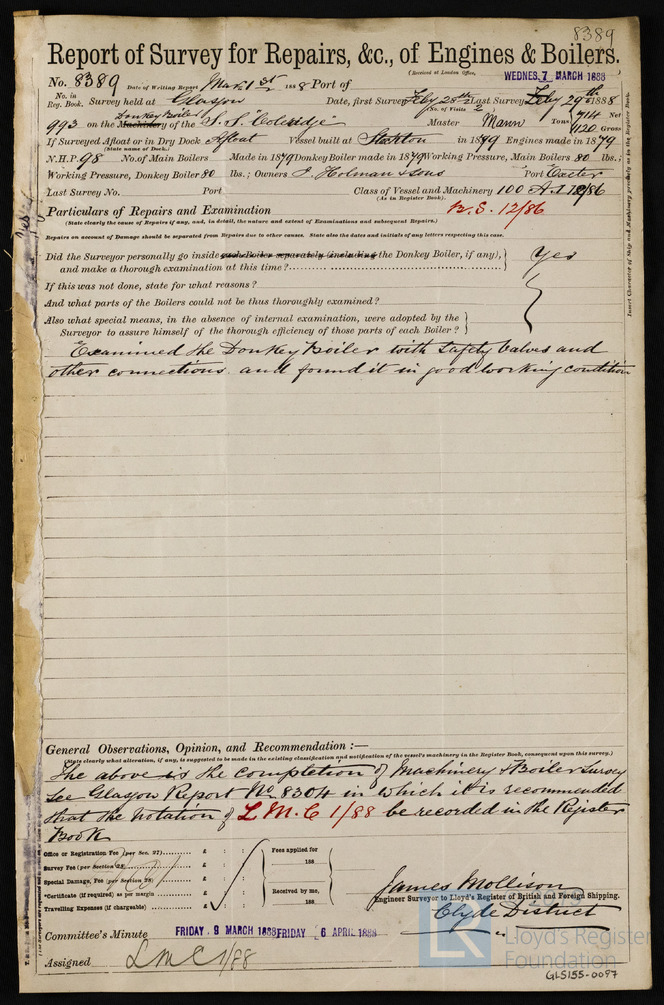 8389
Report of Survey for Repairs, &c., of Engines & Boilers.
(Received at London Office, WEDNES. 7 MARCH 1888
No. 8389 Date of Writing Report Mar 1st 1888 Port of
No. in Reg. Book. Survey held at Glasgow Date, first Survey Feby 28th Last Survey Feby 29th 1888
(No. of Visits 2)
993 on the Donkey Boiler Machinery of the S.S. "Coleridge" Master Mann Tons 714 Net 1120 Gross
If Surveyed Afloat or in Dry Dock Afloat Vessel built at Stockton in 1879 Engines made in 1879
(State name of Dock.)
N.H.P. 98 No. of Main Boilers Made in 1879 Donkey Boiler made in 1879 Working Pressure, Main Boilers 80 lbs.;
Working Pressure, Donkey Boiler 80 lbs.; Owners J. Holman & Sons Port Exeter
Last Survey No. Port Class of Vessel and Machinery 100 A.1 12/86
(As in Register Book).
Particulars of Repairs and Examination B.S. 12/86
(State clearly the cause of Repairs if any, and, in detail, the nature and extent of Examinations and subsequent Repairs.)
Repairs on account of Damage should be separated from Repairs due to other causes. State also the dates and initials of any letters respecting this case.
Did the Surveyor personally go inside each Boiler separately (including the Donkey Boiler, if any),
and make a thorough examination at this time? Yes
If this was not done, state for what reasons?
And what parts of the Boilers could not be thus thoroughly examined?
Also what special means, in the absence of internal examination, were adopted by the
Surveyor to assure himself of the thorough efficiency of those parts of each Boiler?
Examined the Donkey Boiler with Safety Valves and
other connections and found it in good working condition
Insert Character of Ship and Machinery precisely as in the Register Book.
General Observations, Opinion, and Recommendation :—
(State clearly what alteration, if any, is suggested to be made in the existing classification and notification of the vessel's machinery in the Register Book, consequent upon this survey.)
The above is the completion of Machinery & Boiler Survey
see Glasgow Report No 8304 in which it is recommended
that the notation of L.M.C 1/88 be recorded in the Register
Book
Office or Registration Fee (per Sec. 27).......... £ : :
Survey Fee (per Section 28)............... £ : :
Special Damage, Fee (per Section 28)......... £ : :
*Certificate (if required) as per margin ........... £ : :
Travelling Expenses (if chargeable) ............. £ : :
Fees applied for
188
Received by me,
188
James Mollison
Engineer Surveyor to Lloyd's Register of British and Foreign Shipping.
Clyde District
Committee's Minute FRIDAY 9 MARCH 1888 FRIDAY 6 APRIL 1888
Assigned LMC 1/88
Lloyd's Register
Foundation
GLS155-0097